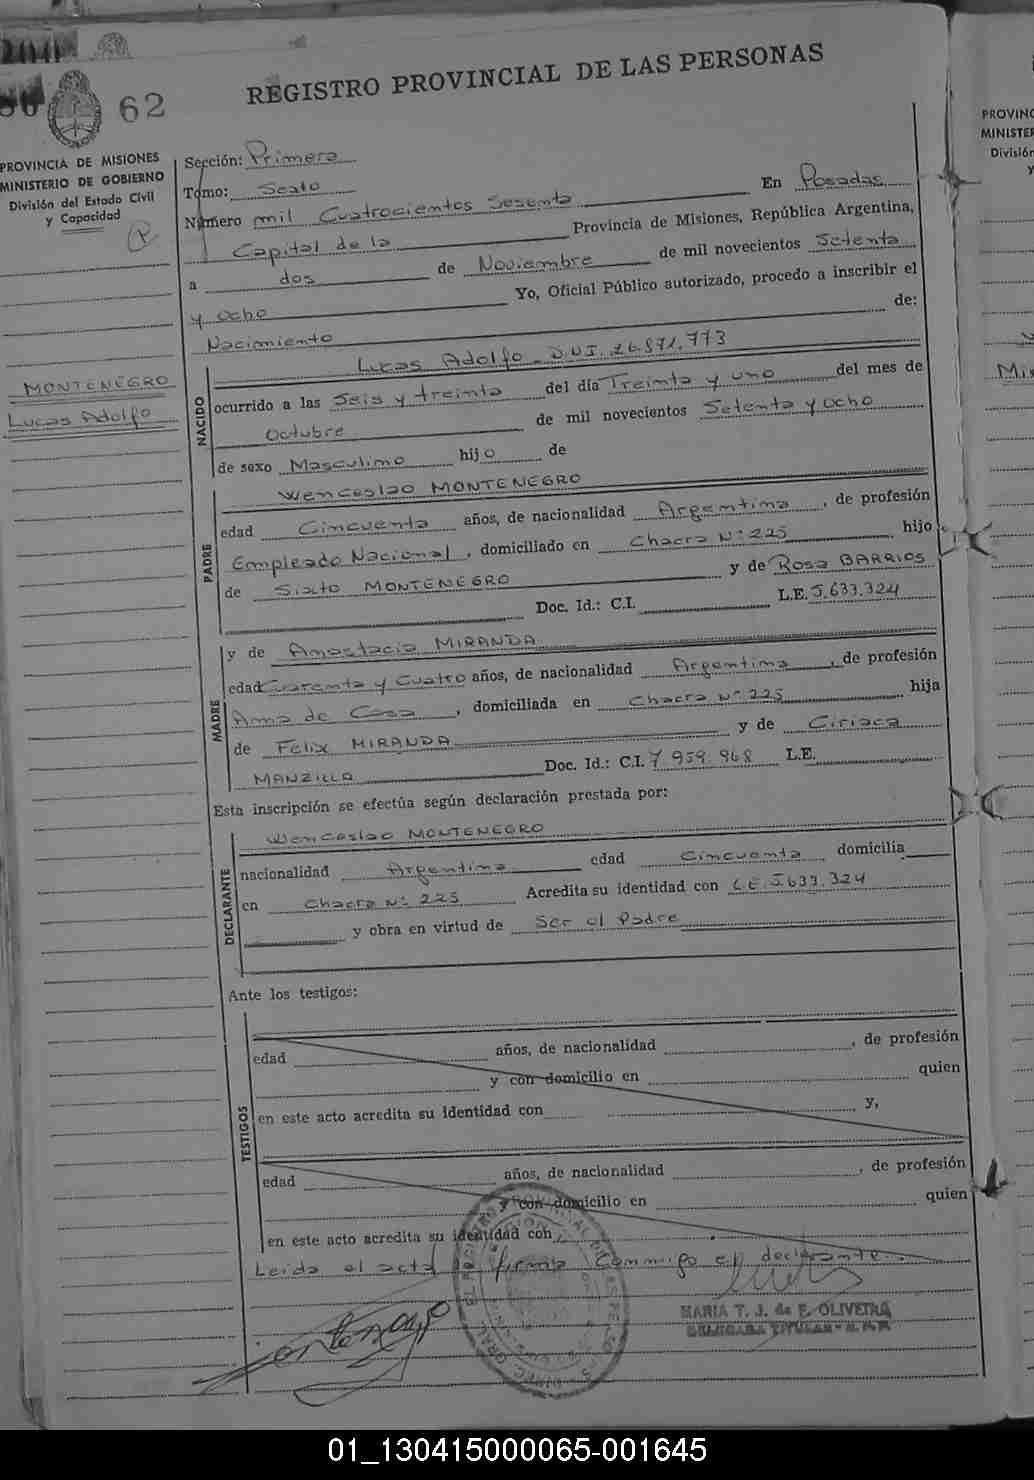 62
REGISTRO PROVINCIAL DE LAS PERSONAS
PROVINCIA DE MISIONES
MINISTERIO DE GOBIERNO
División del Estado Civil
y Capacidad
MONTENEGRO
Lucas Adolfo
Sección: Primera
Tomo: Sexto
Número mil Cuatrocientos Sesenta En Posadas
Capital de la Provincia de Misiones, República Argentina,
a dos de Noviembre de mil novecientos Setenta
y Ocho Yo, Oficial Público autorizado, procedo a inscribir el
Nacimiento de:
NACIDO
Lucas Adolfo D.N.I. 26.871.773
ocurrido a las Seis y treinta del día Treinta y uno del mes de
Octubre de mil novecientos Setenta y ocho
de sexo Masculino hijo de
PADRE
Wenceslao MONTENEGRO
edad Cincuenta años, de nacionalidad Argentina, de profesión
Empleado Nacional, domiciliado en Chacra Nº 225 hijo
de Sixto MONTENEGRO y de Rosa BARRIOS
Doc. Id.: C.I. L.E. 5.633.324
MADRE
y de Anastacia MIRANDA
edad Cuarenta y Cuatro años, de nacionalidad Argentina, de profesión
Ama de Casa, domiciliada en Chacra Nº 225 hija
de Felix MIRANDA y de Ciriaca
MANZILLA Doc. Id.: C.I. 7.959.968 L.E.
Esta inscripción se efectúa según declaración prestada por:
DECLARANTE
Wenceslao MONTENEGRO
nacionalidad Argentina edad Cincuenta domicilia
en Chacra Nº 225 Acredita su identidad con L.E. 5.633.324
y obra en virtud de Ser el Padre
Ante los testigos:
TESTIGOS
edad años, de nacionalidad , de profesión
y con domicilio en quien
en este acto acredita su identidad con y,
edad años, de nacionalidad , de profesión
y con domicilio en quien
en este acto acredita su identidad con
Leida el acta la firma Conmigo el declarante
MARIA T. J. de E. OLIVEIRA
DELEGADA TITULAR
PROVINC
MINISTER
División
y
01_130415000065-001645